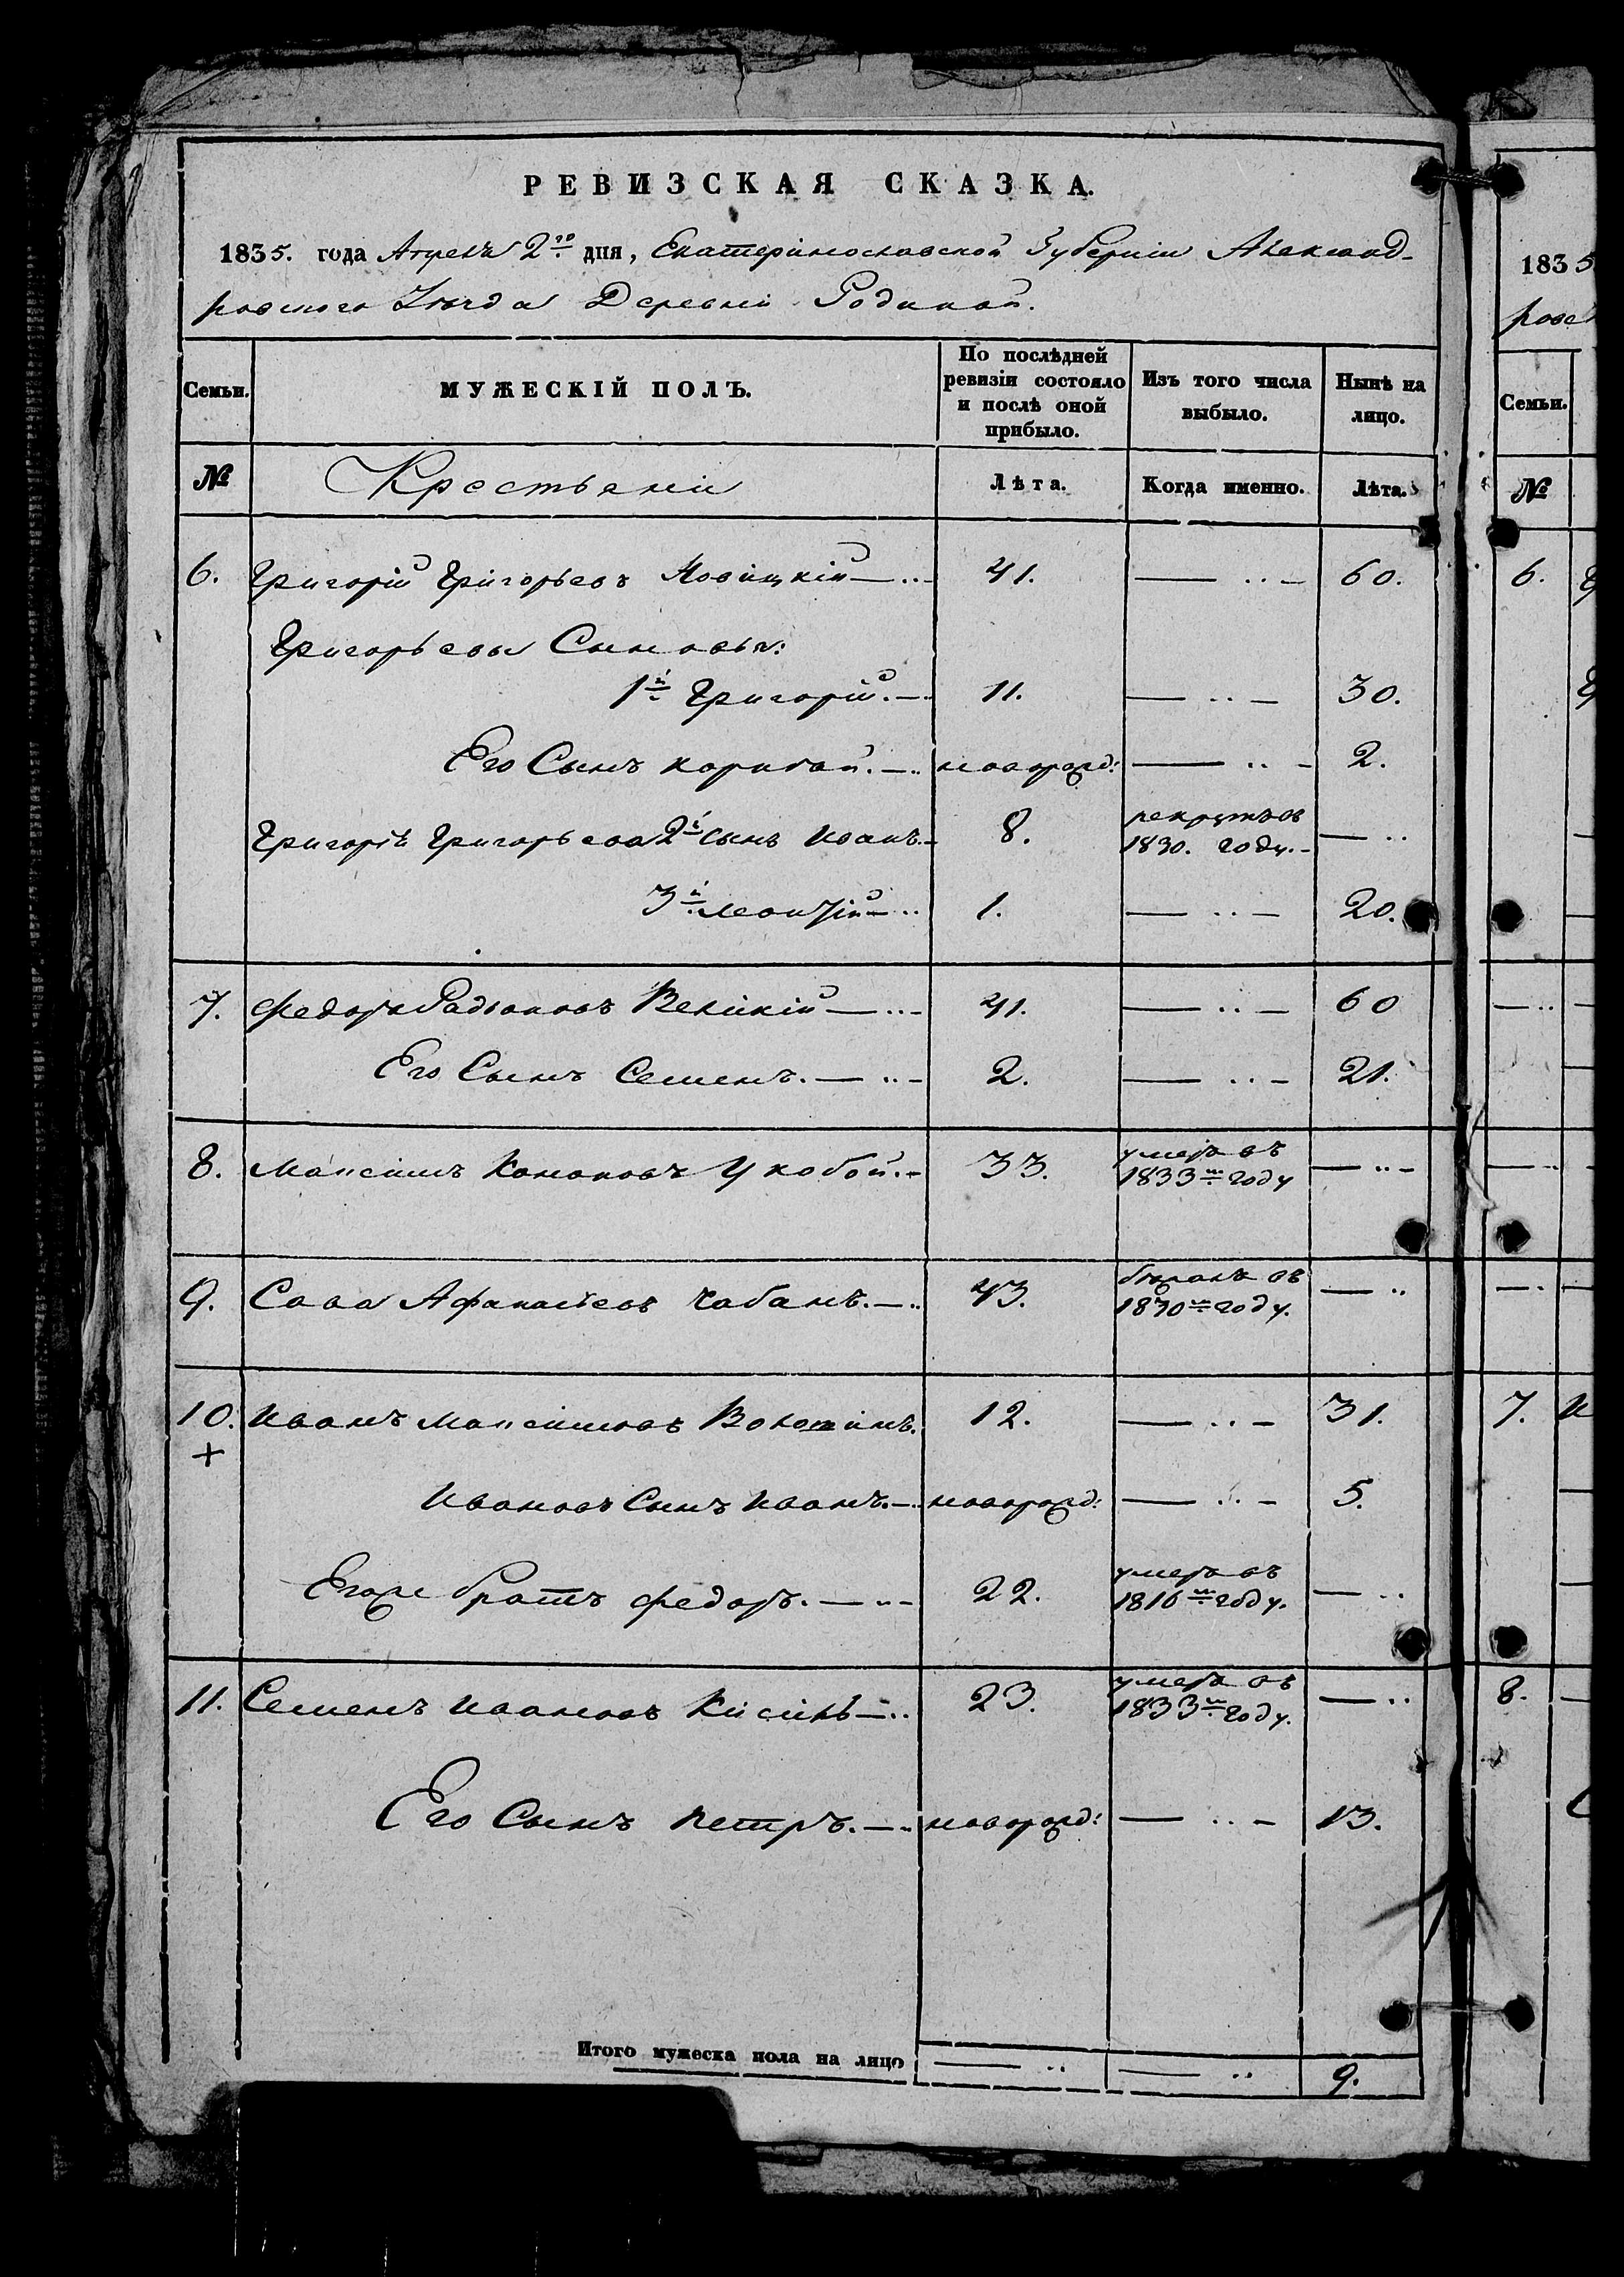 РЕВИЗСКАЯ СКАЗКА.
1835. года Апреля 2го дня, Екатеринославской Губернии Александ-
ровского Уезда Деревни Родиной.
Семьи. МУЖЕСКІЙ ПОЛЪ. По послѣдней ревизіи состояло и послѣ оной прибыло. Изъ того числа выбыло. Нынѣ на лицо.
№ Крестьяни Лѣта. Когда именно. Лѣта.
6. Григорій Григорьевъ Новицкій — .. - 41. — .. - 60.
Григорьевы Сыновья:
1й Григорій. — .. 11. — .. - 30.
Его Сынъ — .. новорожд: — .. - 2.
Григорій Григорьева 2й Сынъ Иванъ. - 8. рекрутъ въ 1830. году. - — ..
3й Леонтій — .. 1. — .. - 20.
7. Федоръ Радіоновъ Великій — .. - 41. — .. - 60
Его Сынъ Семенъ. — .. - 2. — .. - 21.
8. Максимъ Кононовъ - 33. умеръ въ 1833м году — .. -
9. Сава Афанасіевъ Чабанъ. — .. 43. въ 1830м году. — ..
10. Иванъ Максимовъ Волошинъ. 12. — .. - 31.
+
Ивановъ Сынъ Иванъ. — .. новорожд: — .. - 5.
Егоже братъ Федоръ. — .. - 22. умеръ въ 1816м году. — ..
11. Семенъ Ивановъ Кисиль — .. 23. умеръ въ 1833м году. — ..
Его Сынъ Петръ. — .. новорожд: — .. - 13.
Итого мужеска пола на лицо — .. — .. 9.
1835
ровс
Семьи.
№
6.
7. И
8.